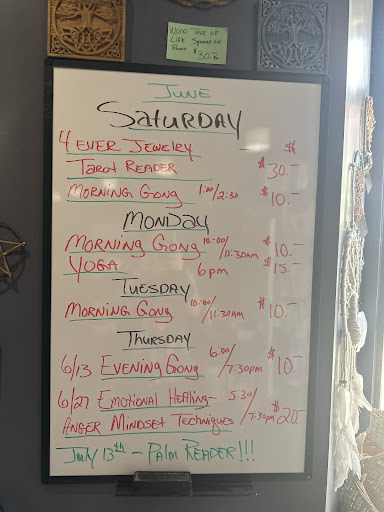 WOOD TREE OF
LIFE SQUARE OR
ROUND $30.00
JUNE
SATURDAY
4 EVER JEWELRY $$
TAROT READER $30.-
MORNING GONG 1:00/2:30 $10.-
MONDAY
MORNING GONG 10:00/11:30AM $10.-
YOGA 6pm $15.-
TUESDAY
MORNING GONG 10:00/11:30AM $10.-
THURSDAY
6/13 EVENING GONG 6:00/7:30pm $10.-
6/27 EMOTIONAL HEALING- 5:30/7:30pm $20.-
ANGER MINDSET TECHNIQUES
July 13th - PALM READER!!!